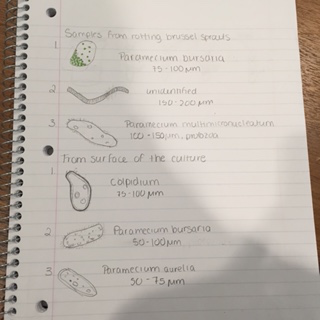 Samples from rotting brussel sprouts
1. Paramecium bursaria
75-100µm
2 unidentified
150-200µm
3. Paramecium multimicronucleatum
100-150µm, protozoa
From surface of the culture
1. Colpidium
75-100µm
2 Paramecium bursaria
50-100µm
3 Paramecium aurelia
50-75µm